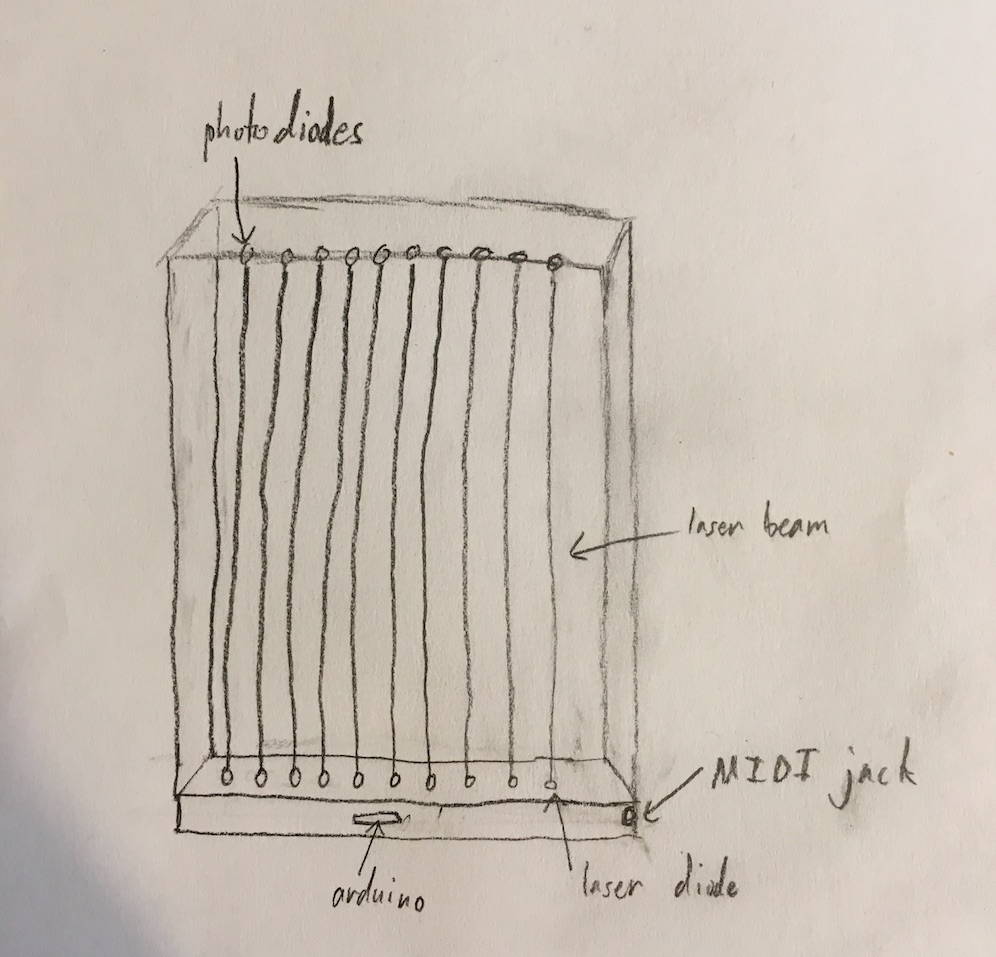 photodiodes
laser beam
MIDI jack
arduino
laser diode